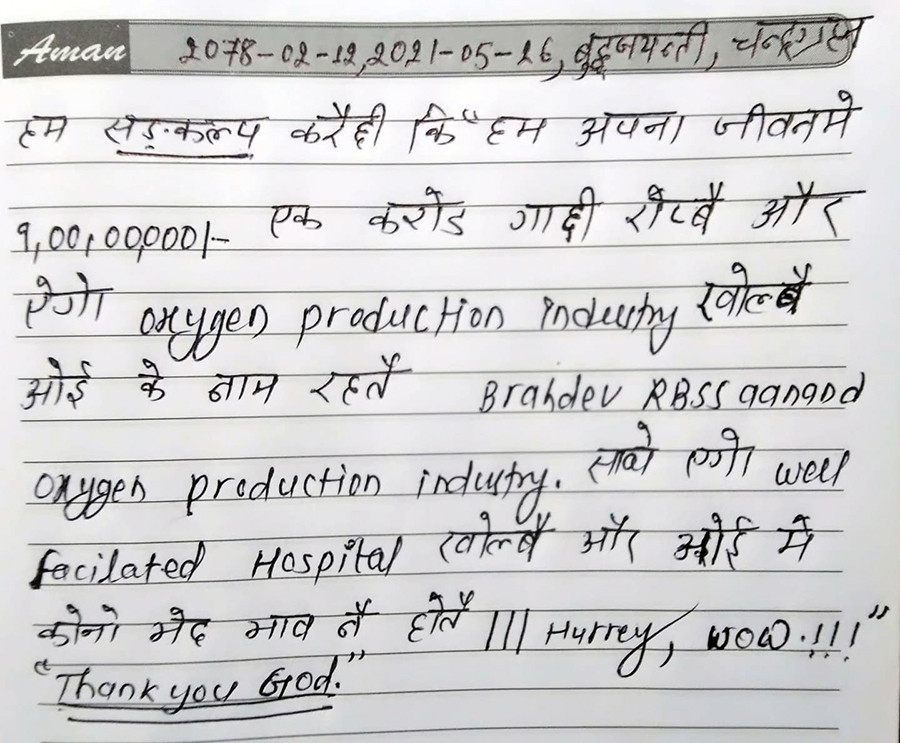 Aman 2078-02-12, 2021-05-26, बुद्धजयन्ती, चन्द्रग्रहण
हम सङ्कल्प करैछी कि "हम अपना जीवनमे
१,००,००,०००/- एक करोड गाछी रोप्बै और
ऐगो oxygen production industry खोल्बै
ओई के नाम रहतै Brahdev RBSS aanand
oxygen production industry. साथे एगो well
facilated Hospital खोल्बै और ओई मे
कोनो भेद भाव नै होतै ||| Hurrey, wow.!!!"
"Thank you God."